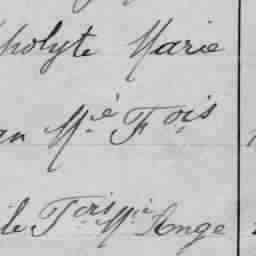 polyte Marie
an M.ie F.ois
le F.ois M.ie Ange